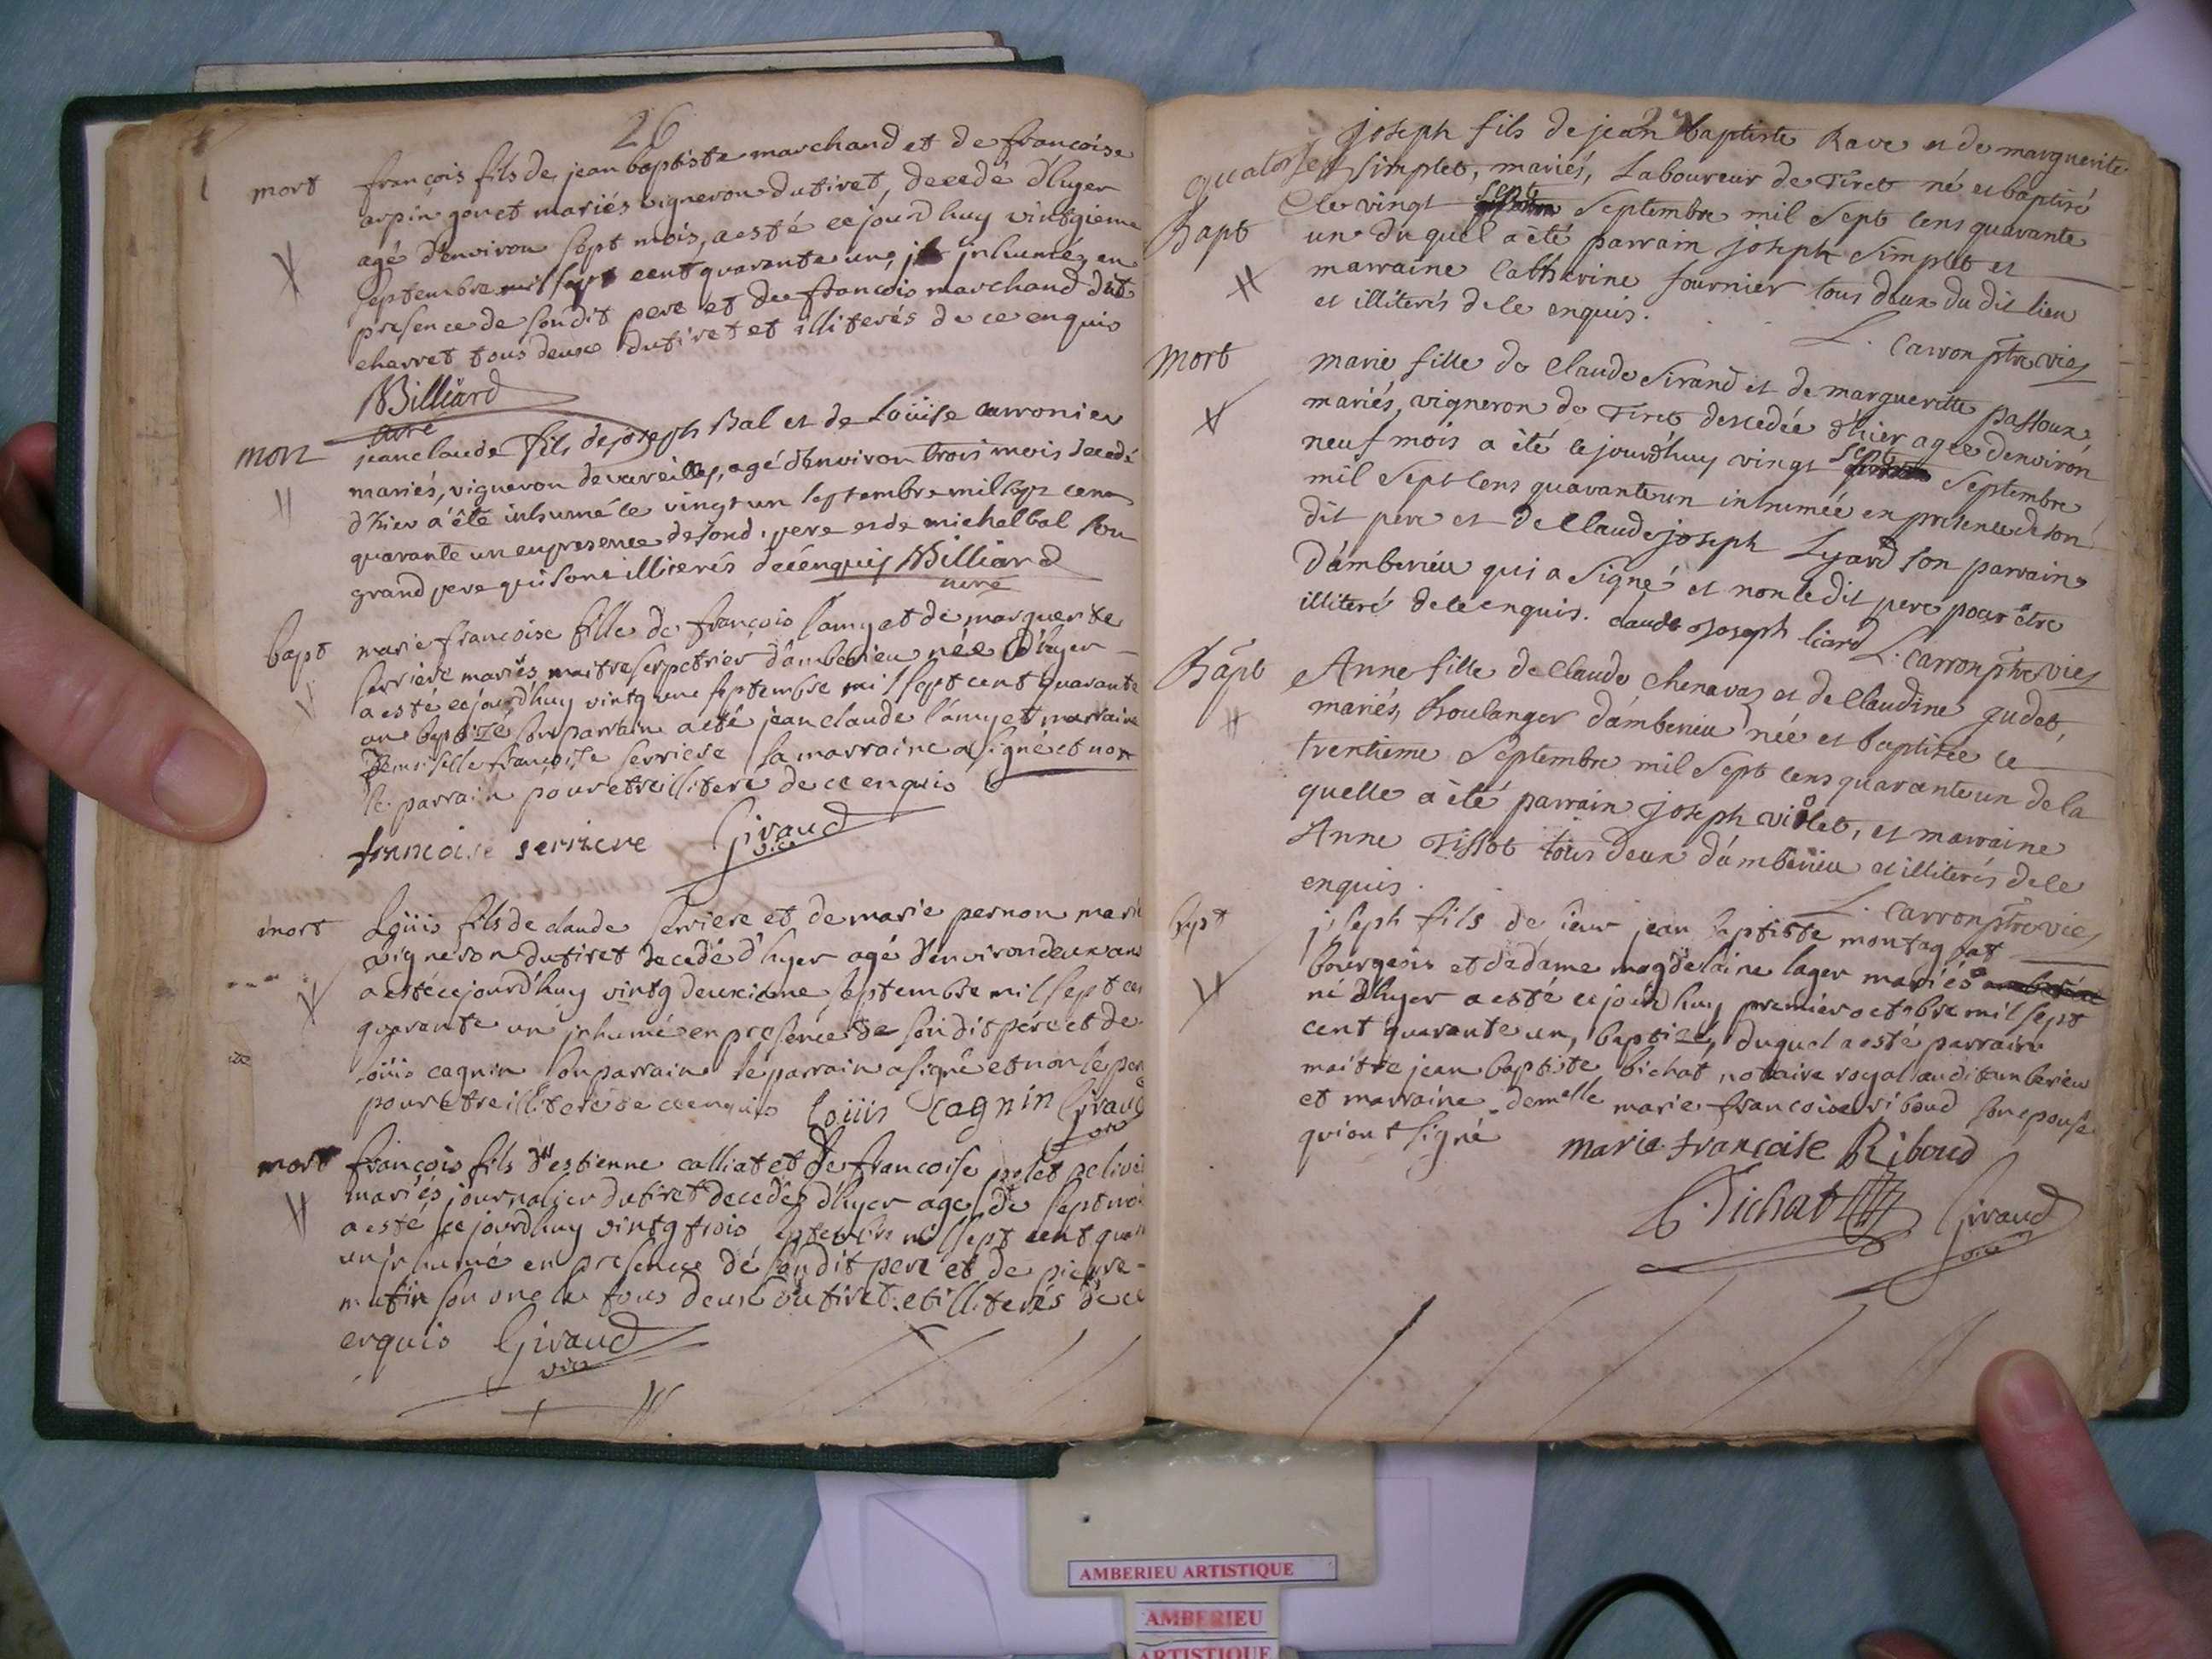 26
mort
françois fils de jean baptiste marchand et de francoise
arpin genet mariés vigneron dutiret, decedé d'hyer
agé d'environ sept mois, a esté ce jourd huy vintgieme
septembre mil sept cent quarante un, inhumé, en
presence de son dit pere et de francois marchand dit
charret tous deux dutiret et illiterés de ce enquis
Billiard
curé
mort
jean claude fils de joseph Bal et de Loüise carronier
mariés, vigneron de vareilles, agé d'environ trois mois decedé
d'hier a été inhumé le vingt un septembre mil sept cent
quarante un en presence de sond. pere et de michel bal son
grand pere qui sont illiterés de ce enquis Billiard
curé
bapt
marie francoise fille de françois lamy et de marguerite
serriere mariés maitre serpetrier d'amberieu née d'hyer
a esté ce jourd'huy vintg une septembre mil sept cent quarante
un baptizé son parrain a eté jean claude lamy et marraine
Demoiselle françoise serriere la marraine a signé et non
le parrain pour etre illiteré de ce enquis
francoise serriere Giraud
vice
mort
Loüis fils de claude serriere et de marie pernon marié
vigneron dutiret decedé d'hyer agé d'environ deux ans
a esté ce jourd'huy vintg deuxieme septembre mil sept cen
quarante un inhumé en presence de son dit pere et de
loüis cagnin son parrain le parrain a signé et non le pere
pour etre illiteré de ce enquis Loüis Cagnin Giraud
vice
mort
françois fils d'estienne calliat et de francoise polet
mariés journalier dutiret decedés d'hyer agé de sept moi
a esté ce jourd huy vintg trois septembre mil sept cent quar
un inhumé en presence de son dit pere et de pierre
mutin son oncle tous deux dutiret et illiterés de ce
enquis Giraud
vice
27
joseph fils de jean baptiste Rave et de marguerite
quatorze
simplet, mariés, Laboureur de Tiret né et baptisé
le vingt sept Septembre mil Sept cens quarante
Bapt
un duquel a été parrain joseph Simplet et
marraine Catherine fournier tous deux du dit lieu
et illiterés de ce enquis.
L. Carron ptre vic
Mort
marie fille de Claude Sirand et de margueritte passoux
mariés, vigneron de Tiret descedée d'hier agée d'environ
neuf mois a été ce jourd'huy vingt sept Septembre
mil Sept Cens quarante un inhumée en presence de son
dit pere et de Claude joseph Lyard son parrain
d'amberieu qui a Signé et non le dit pere pour être
illiteré de ce enquis. claude Joseph liard L. Carron ptre vic
Bapt
Anne fille de Claude Chenavaz et de Claudine gudet,
mariés, Boulanger d'amberieu née et baptisée le
trentieme Septembre mil Sept Cens quarante un de la
quelle a été parrain joseph violet, et marraine
Anne Tissot tous deux d'amberieu et illiterés de ce
enquis.
L. Carron ptre vic
bapt
joseph fils de sieur jean baptiste montag nat
bourgeois et de dame magdelaine lager mariés
né d'hyer a esté ce jourd huy premier octobre mil sept
cent quarante un, baptizé, duquel a esté parrain
maitre jean baptiste bichat notaire royal audit amberieu
et marraine demelle marie francoise riboud son epouse
qui ont signé
marie françoise Riboud
Bichat Giraud
vice
AMBERIEU ARTISTIQUE
AMBERIEU
ARTISTIQUE